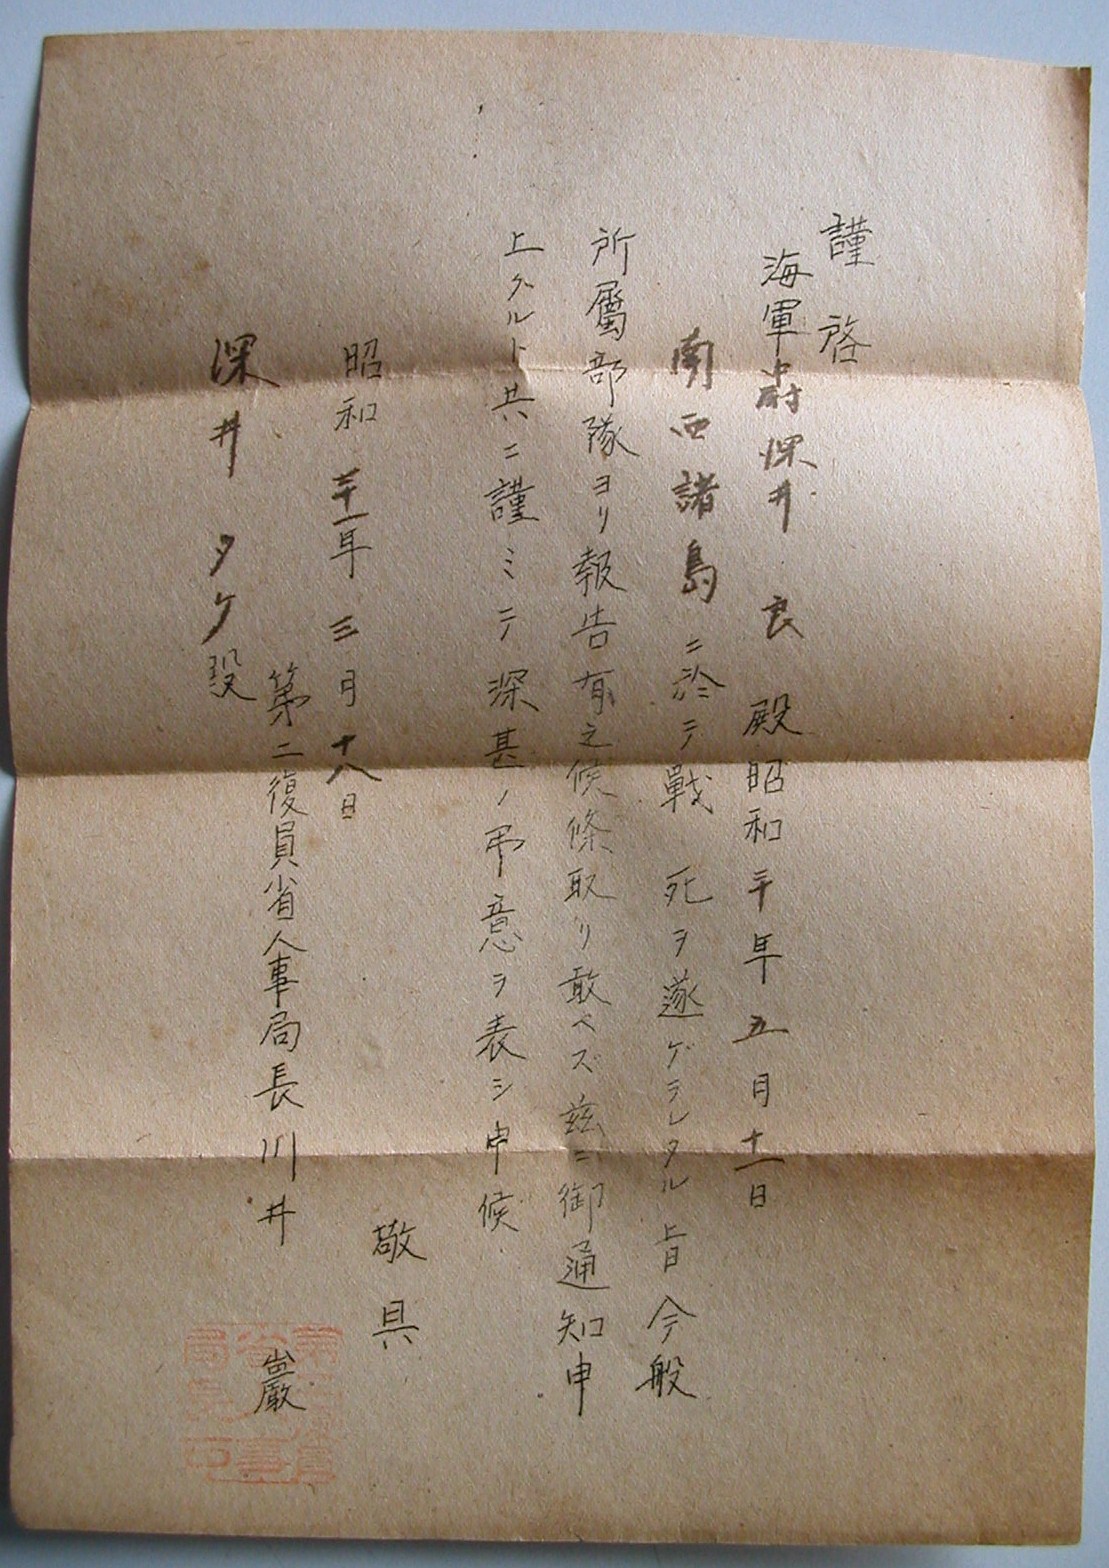 謹啓
海軍少尉深井良殿昭和二十年五月十一日
南西諸島ニ於テ戰死ヲ遂ゲラレタル旨今般
所屬部隊ヨリ報告有之候條取リ敢ヘズ茲ニ御通知申
上クルト共ニ謹ミテ深甚ノ弔意ヲ表シ申候
敬具
昭和二十一年三月十八日
第二復員省人事局長川井巖
深井タケ殿